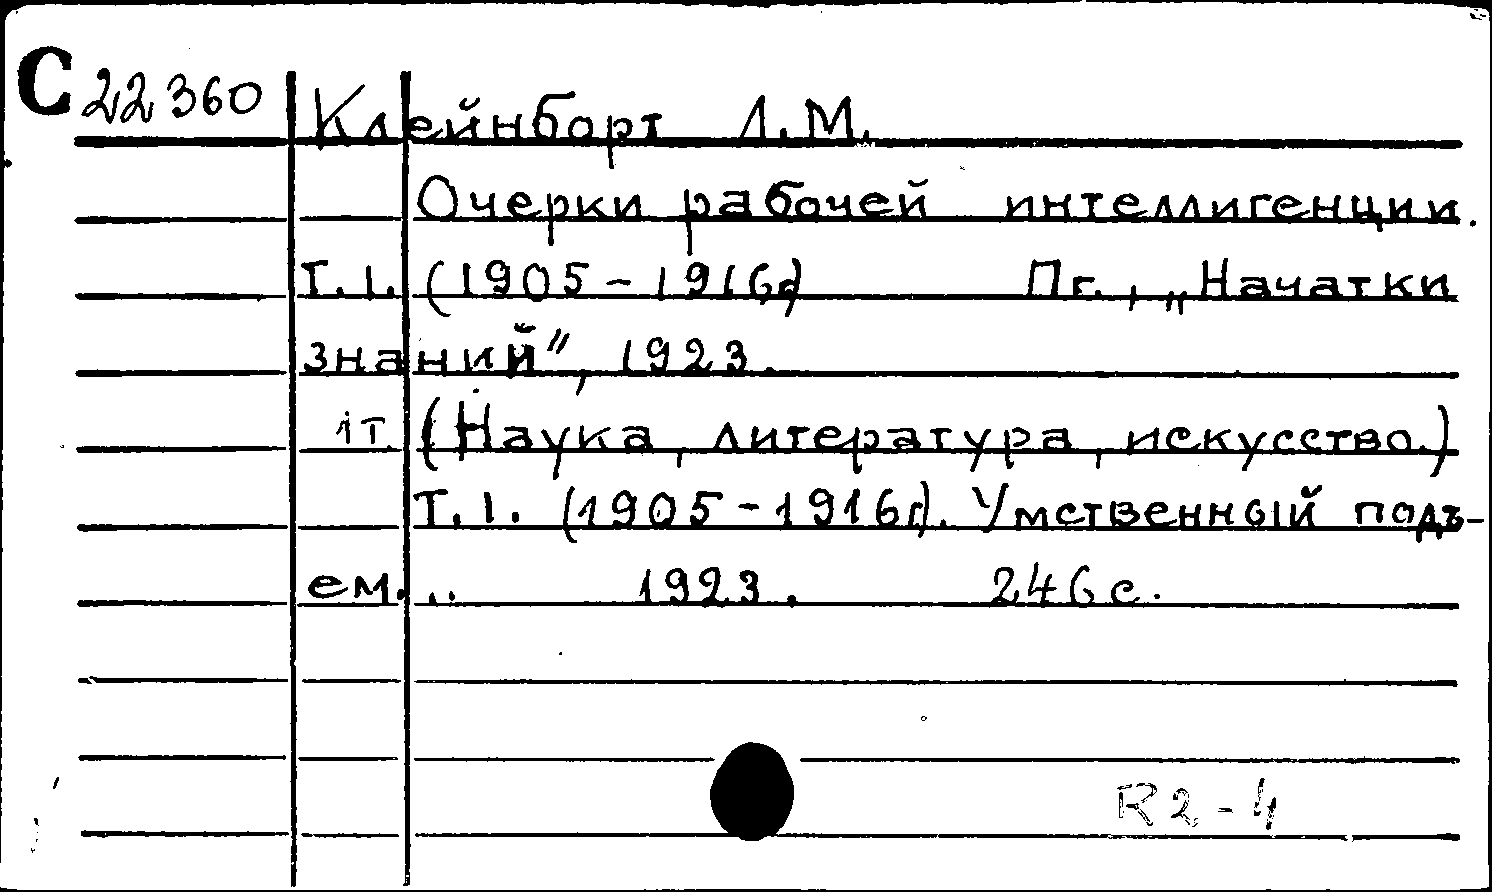 С 22360 Клейнборт Л.М.
Очерки рабочей интеллигенции.
Т.1. (1905-1916г) Пг., „Начатки
знаний", 1923.
1т (Наука, литература, искусство.)
Т.1. (1905-1916г). Умственный подъ-
ем... 1923. 246с.
R2-4